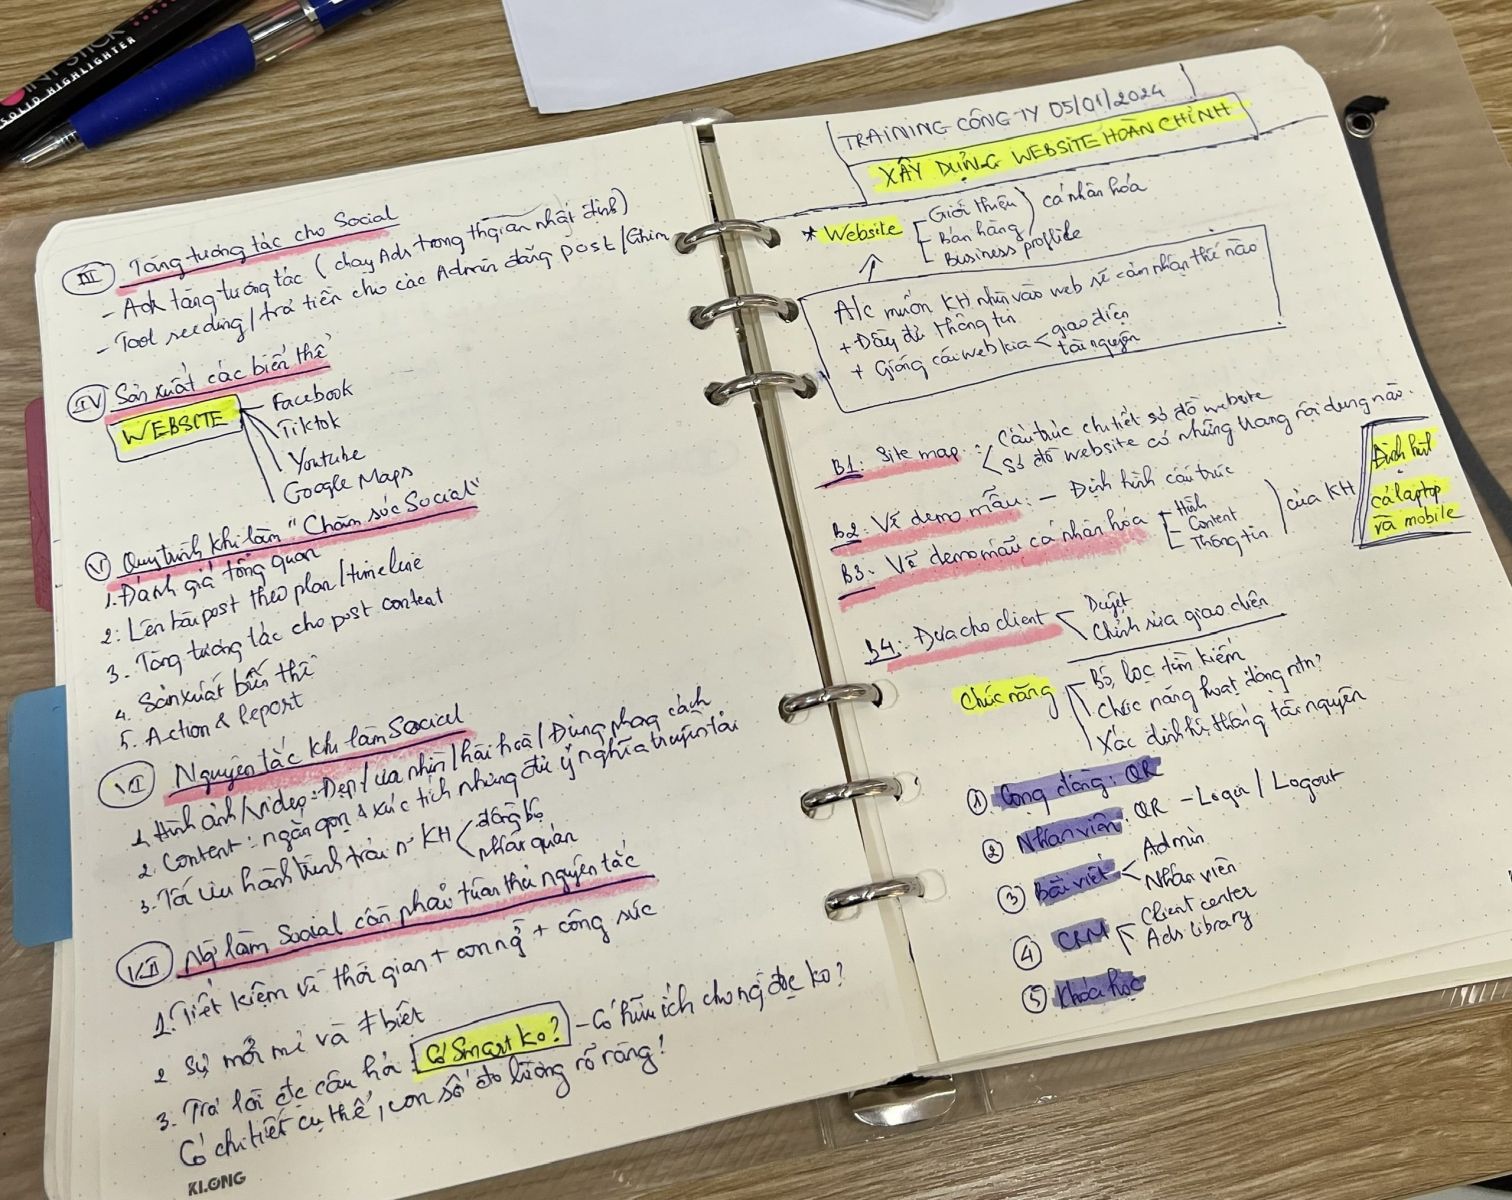 INT STICK
SOLID HIGHLIGHTER
III Tăng tương tác cho Social
- Ads tăng tương tác (chạy Ads trong thgian nhất định)
- Tool seeding / trả tiền cho các Admin đăng post / Ghim
IV Sản xuất các biến thể
WEBSITE
Facebook
Tiktok
Youtube
Google Maps
V Quy trình khi làm "Chăm sóc Social"
1. Đánh giá tổng quan
2: Lên bài post theo plan / timeline
3. Tăng tương tác cho post content
4. Sản xuất biến thể
5. Action & Report
VI Nguyên tắc khi làm Social
1. Hình ảnh / video: Đẹp / ưa nhìn / hài hoà / Đúng phong cách
2. Content: ngắn gọn & xúc tích nhưng đủ ý nghĩa truyền tải
3. Tối ưu hành trình trải n° KH
đồng bộ
nhất quán
VII Ng làm Social cần phải tuân thủ nguyên tắc
1. Tiết kiệm về thời gian + con ng + công sức
2. Sự mới mẻ và ≠ biệt
3. Trả lời đc câu hỏi: Có Smart ko? - Có hữu ích cho ng đọc ko?
Có chi tiết cụ thể, con số đo lường rõ ràng!
KLONG
TRAINING CÔNG TY 05/01/2024
XÂY DỰNG WEBSITE HOÀN CHỈNH
* Website
Giới thiệu
Bán hàng
Business profile
cá nhân hóa
A/c muốn KH nhìn vào web sẽ cảm nhận thế nào
+ Đầy đủ thông tin
+ Giống cái web kia < giao diện
tài nguyên
B1: Site map: Cấu trúc chi tiết sơ đồ website
Sơ đồ website có những trang nội dung nào.
B2: Vẽ demo mẫu: - Định hình cấu trúc
B3: Vẽ demo mẫu cá nhân hóa
Hình
Content
Thông tin
của KH
cả laptop
và mobile
B4: Đưa cho client
Duyệt
Chỉnh sửa giao diện
Chức năng
Bộ lọc tìm kiếm
Chức năng hoạt động ntn?
Xác định hệ thống tài nguyên
① Cộng đồng: QR
② Nhân viên: QR - Login / Logout
③ Bài viết
Admin
Nhân viên
④ CRM
Client center
Ads library
⑤ Khóa học